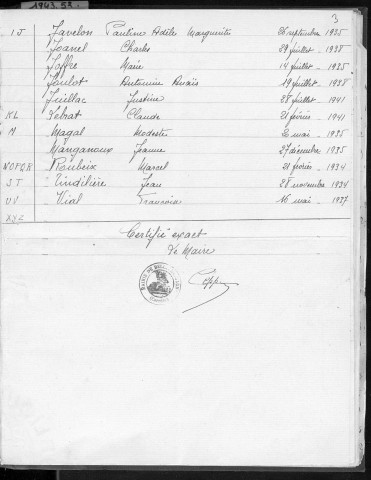 1943.52
3
IJ Javelon Pauline Adèle Marguerite 26 septembre 1935
Joanel Charles 29 juillet - 1938
Joffre Marie 14 juillet - 1935
Joulot Antonine Anaïs 19 juillet - 1938
Juillac Justine 28 juillet - 1941
KL Lebrat Claude 21 février - 1941
M Magal Modeste 2 mai - 1935
Manganoux Jeanne 27 décembre 1935
NOPQR Roubeix Marcel 21 février - 1934
ST Tindilière Jean 28 novembre 1934
UV Vial Francois 16 mai - 1937
XYZ
Certifié exact
Le Maire